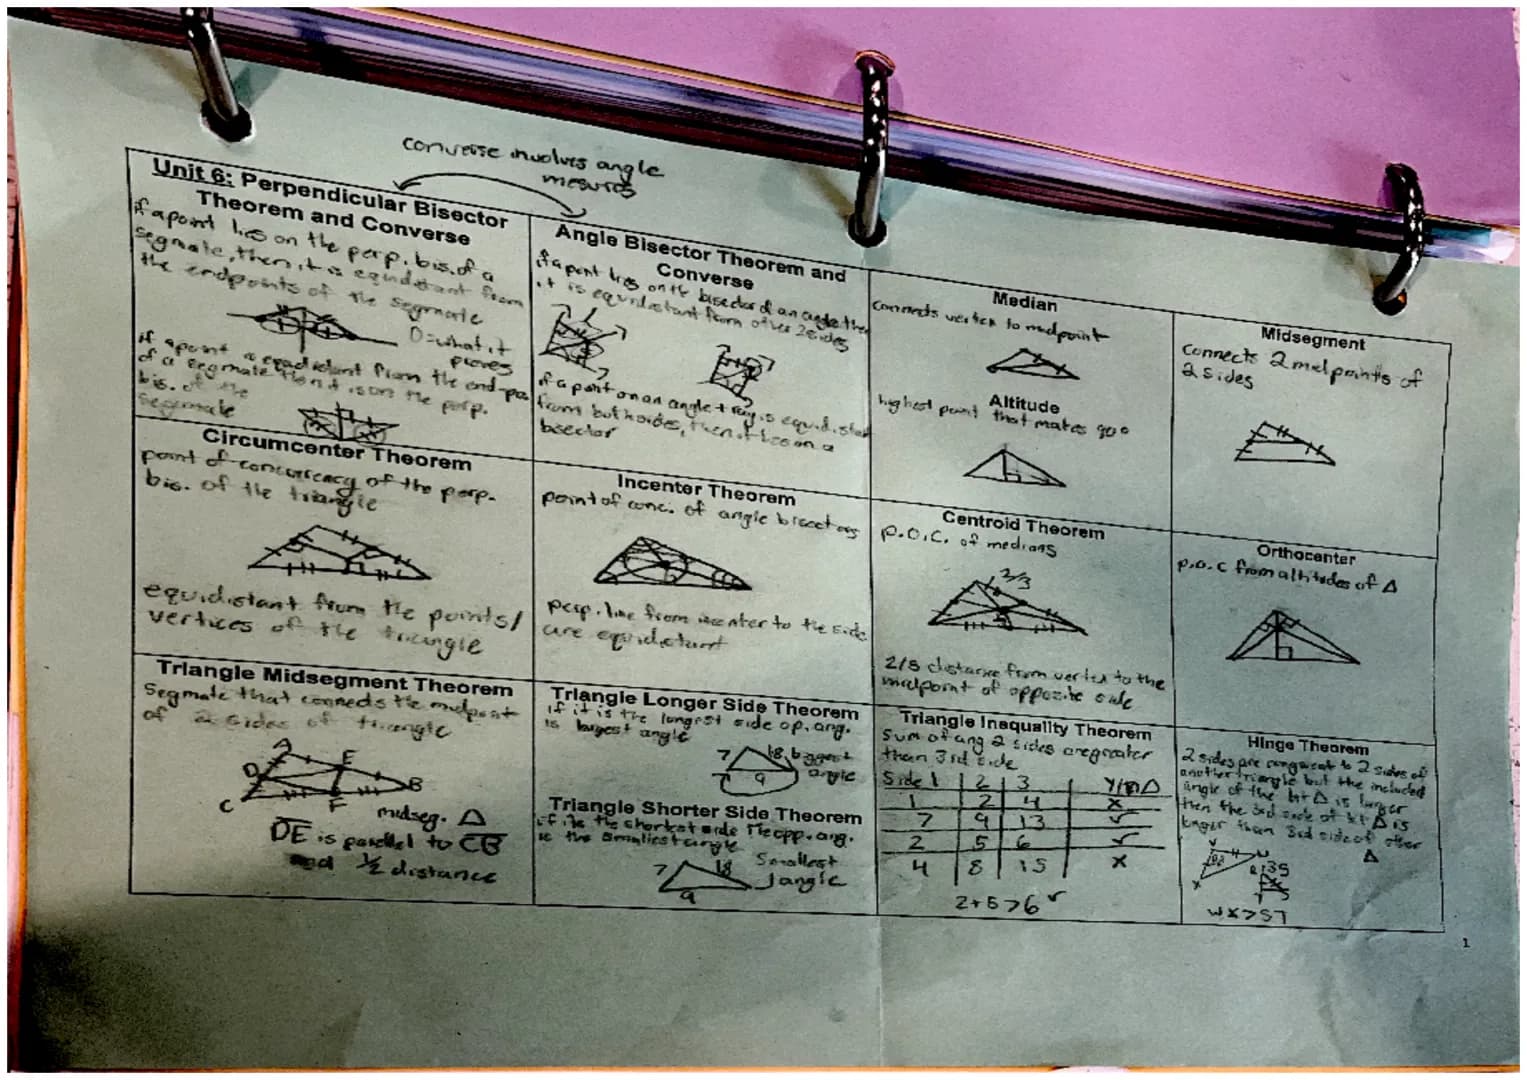 converse involves angle
mesures
Unit 6: Perpendicular Bisector
Theorem and Converse
if a point lies on the perp. bis. of a
segmate, then it is equidistant from
the endpoints of the segmate
D=what it
proves
if a point is equidistant from the end
of a segmate then it is on the perp.
bis. of the
segmate
Angle Bisector Theorem and
Converse
if a point lies on the bisector of an angle then
it is equidistant from other 2 sides
if a point on an angle ray is equidistant
from both sides, then it lies on a
bisector
Median
connects vertex to midpoint
Altitude
highest point that makes 90°
Midsegment
connects 2 midpoints of
2 sides
Circumcenter Theorem
point of concurrency of the perp.
bis. of the triangle
equidistant from the points/
vertices of the triangle
Incenter Theorem
point of conc. of angle bisectors
perp. line from incenter to the side
are equidistant
Centroid Theorem
P.O.C. of medians
2/3
2/3 distance from vertex to the
midpoint of opposite side
Orthocenter
p.o.c from altitudes of Δ
Triangle Midsegment Theorem
Segmate that connects the midpoint
of 2 sides of triangle
A
D
E
B
C
F
midseg. Δ
DE is parallel to CB
and 1/2 distance
Triangle Longer Side Theorem
if it is the longest side op. ang.
is largest angle
7
18
9
biggest
angle
Triangle Shorter Side Theorem
if its the shortest side the opp. ang.
is the smallest angle
7
18
9
Smallest
angle
Triangle Inequality Theorem
Sum of any 2 sides are greater
than 3rd side
Side 1 2 3 Y/N Δ
1 2 4 X
7 9 13 ✓
2 5 6 ✓
4 8 15 X
2+5>6 ✓
Hinge Theorem
2 sides are congruent to 2 sides of
another triangle but the included
angle of the 1st Δ is larger
then the 3rd side of 1st Δ is
longer than 3rd side of other
Δ
V
W
X
R
35
S
T
WX>ST
1